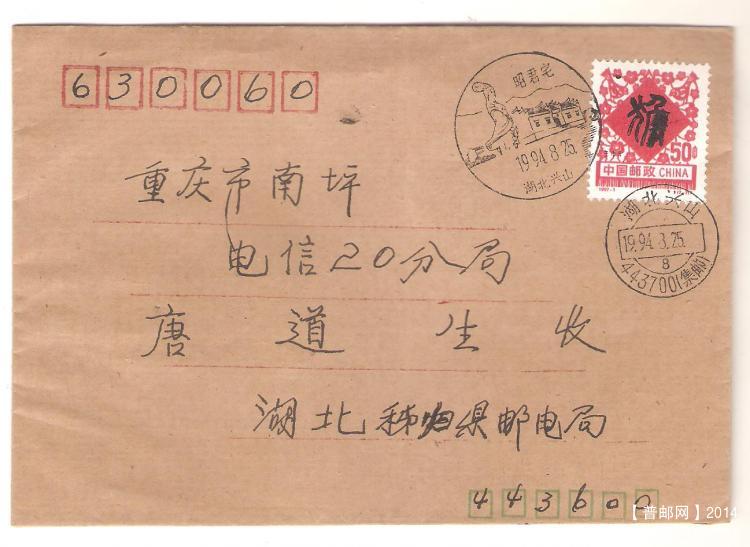 630060
昭君宅
1994.8.25.
湖北兴山
50分
中国邮政 CHINA
湖北兴山
1994.8.25.
8
443700(集邮)
重庆市南坪
电信20分局
唐道生收
湖北秭归县邮电局
443600
【普邮网】2014